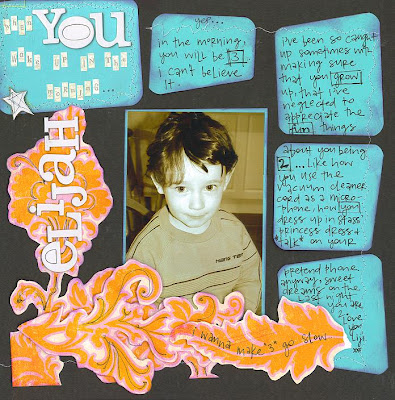 when
YOU
wake up in the
morning...
yep...
in the morning,
you will be 3
i can't believe
it.
i've been so caught
up sometimes in
making sure
that you grow
up, that i've
neglected to
appreciate the
fun things
about you being
2... like how
you use the
vacuum cleaner
cord as a micro-
phone, how you
dress up in
princess dress &
*talk* on your
pretend phone
anyway, sweet
dreams on the
last night
you are
2.
love
you
ELIJAH
i wanna make "3" go slow